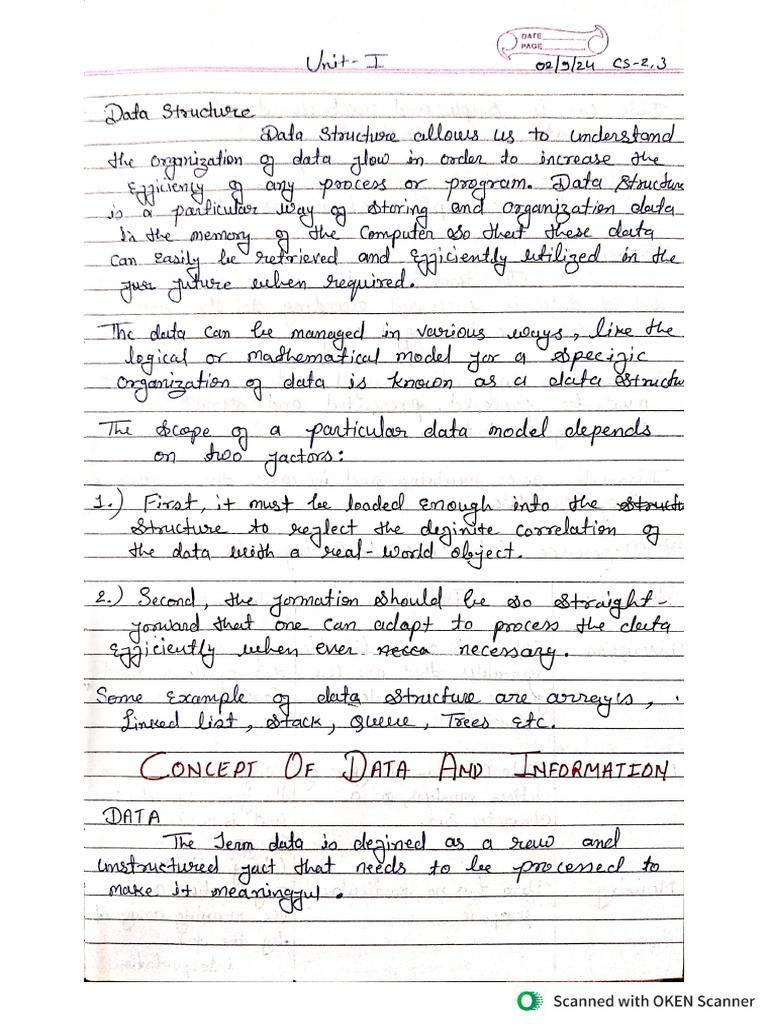 DATE
PAGE
Unit-I
02/9/24 CS-2,3
Data Structure
Data Structure allows us to understand
the organization of data flow in order to increase the
Efficiency of any process or program. Data Structure
is a particular way of storing and organization data
in the memory of the computer so that these data
can easily be retrieved and Efficiently utilized in the
future when required.
The data can be managed in various ways, like the
logical or mathematical model for a specific
organization of data is known as a data structu
The scope of a particular data model depends
on two factors:
1.) First, it must be loaded enough into the struct
structure to reflect the definite correlation of
the data with a real-world object.
2.) Second, the formation should be so straight-
forward that one can adapt to process the data
Efficiently when ever necessary.
Some Example of data structure are arrays,
Linked list, stack, Queue, Trees Etc.
CONCEPT OF DATA AND INFORMATION
DATA
The Term data is defined as a raw and
unstructured fact that needs to be processed to
make it meaningful.
Scanned with OKEN Scanner